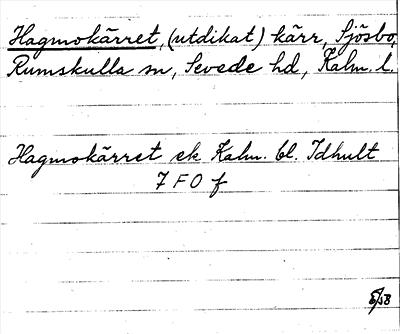 Hagmokärret, (utdikat) kärr, Sjösbo,
Rumskulla sn, Sevede hd, Kalm. l.
Hagmokärret ek Kalm. bl. Idhult
7 F 0 f